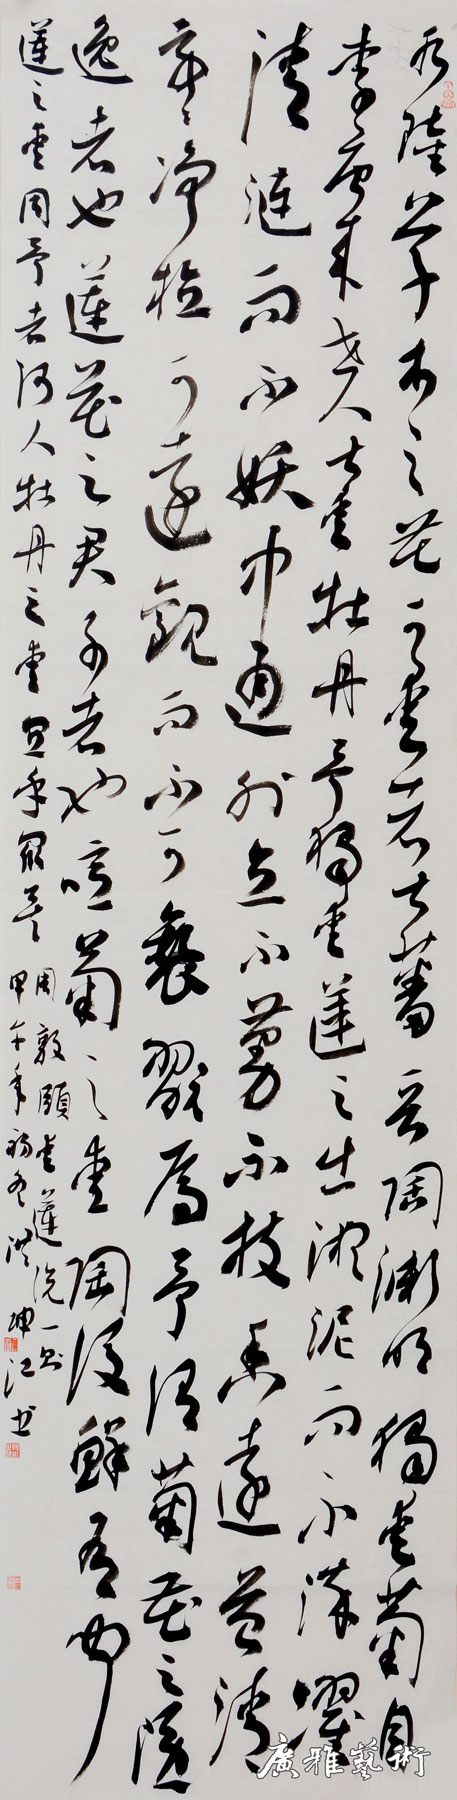 水陸草木之花可愛者甚蕃晉陶淵明獨愛菊自
李唐來世人甚愛牡丹予獨愛蓮之出淤泥而不染濯
清漣而不妖中通外直不蔓不枝香遠益清
亭々淨植可遠觀而不可褻翫焉予謂菊花之隱
逸者也蓮花之君子者也噫菊之愛陶後鮮有聞
蓮之愛同予者何人牡丹之愛宜乎眾矣
周敦頤愛蓮說一則
甲午年初冬洪坤江书
廣雅藝術